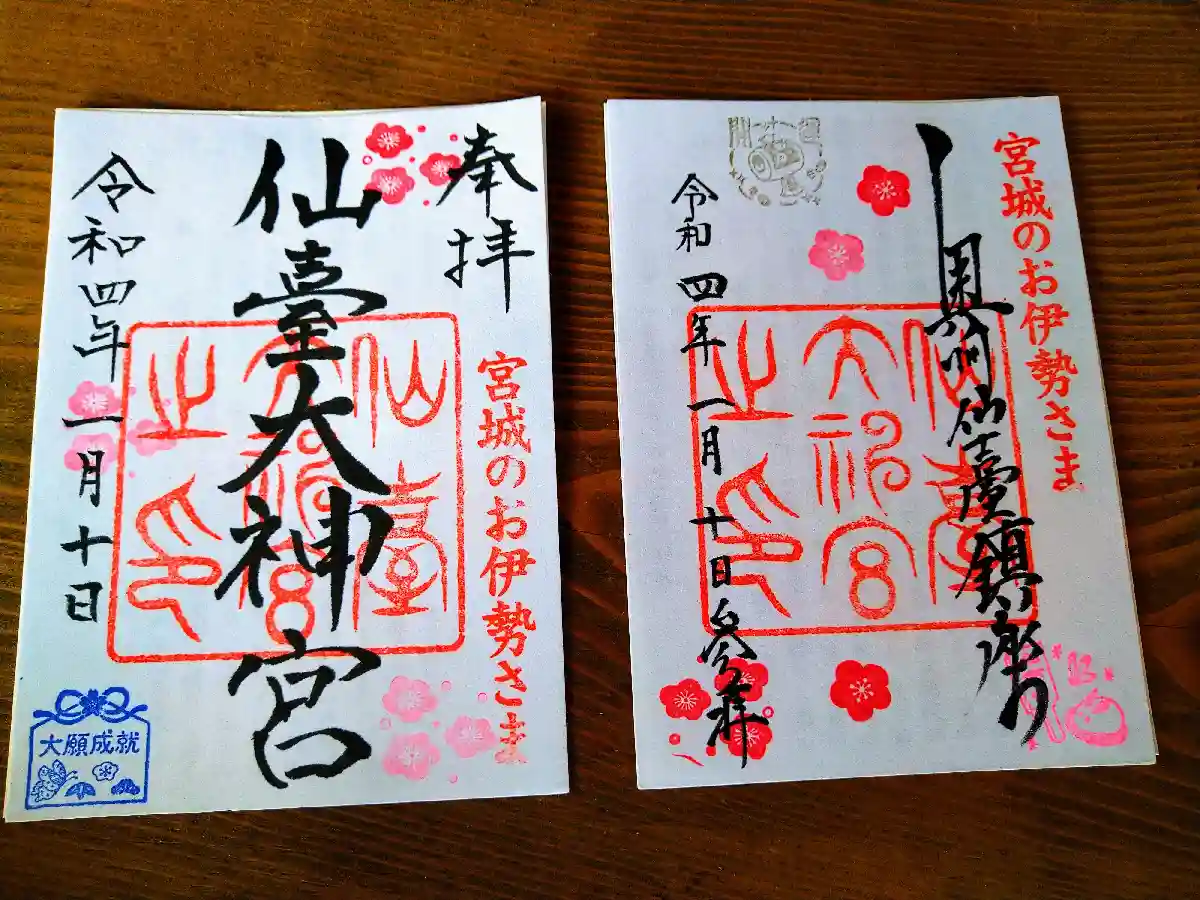 奉拝
宮城のお伊勢さま
仙臺大神宮
仙臺
大神宮
之印
令和四年一月十日
大願成就
宮城のお伊勢さま
奥州仙臺鎮座
仙臺
大神宮
之印
令和四年一月十日参拝